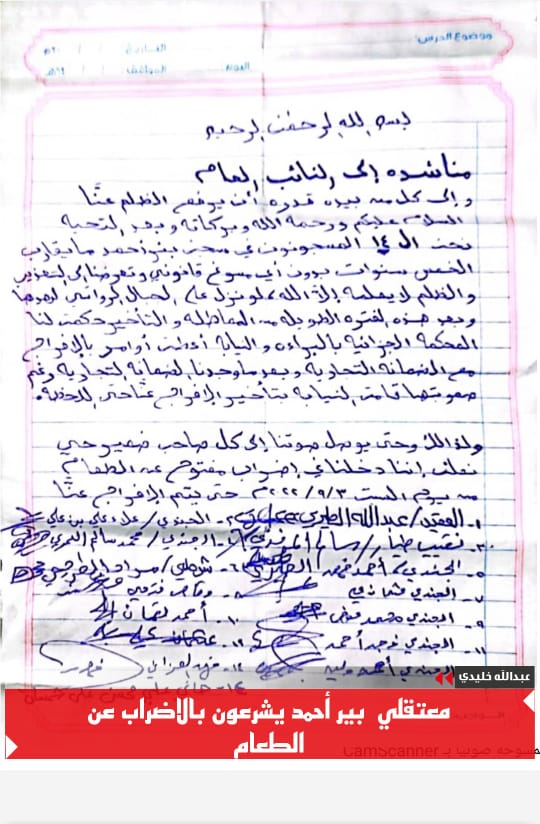 موضوع الدرس:
التاريخ / / ٢٠م
اليوم
الموافق / / ١٤هـ
بسم الله الرحمن الرحيم
مناشده إلى النائب العام
وإلى كل من بيده قدره أن يرفع الظلم عنّا
السلام عليكم ورحمة الله وبركاته وبعد التحيه
نحن الـ ١٤ المسجونون في سجن بئر أحمد ما يقارب
الخمس سنوات بدون أي مسوغ قانوني وتعرضنا إلى التعذيب
والظلم لا يعلمه إلا الله، لو نزل على الجبال الرواسي لهدها
وبعد هذه الفتره الطويله من المماطله والتأخير حكمت لنا
المحكمة الجزائية بالبراءه والنيابة أعطت أوامر بالإفراج
مع الضمانه التجاريه وبعد ما وجدنا الضمانه التجاريه رغم
صعوبتها قامت النيابه بتأخير الإفراج عنّا حتى اللحظه.
ولذالك وحتى يوصل صوتنا إلى كل صاحب ضمير حي
نعلن إننا دخلنا في إضراب مفتوح عن الطعام
من يوم السبت ٢٠٢٢/٩/٣م حتى يتم الإفراج عنّا
١- العقيد/ عبدالله ٢- الجندي/ علاء علي بن علي
٣- نقيب طيار/ سالم ٤- الجندي/ محمد سالم
٥- الجندي/ أحمد ٦- شعلي/ مراد
٧- الجندي ٨-
٩- الجندي محمد ١٠- أحمد
١١- الجندي أحمد ١٢-
الجندي أحمد
١٤- هاني علي
عبدالله خليدي
معتقلي بير أحمد يشرعون بالاضراب عن
الطعام
ممسوحة ضوئيا بـ CamScanner